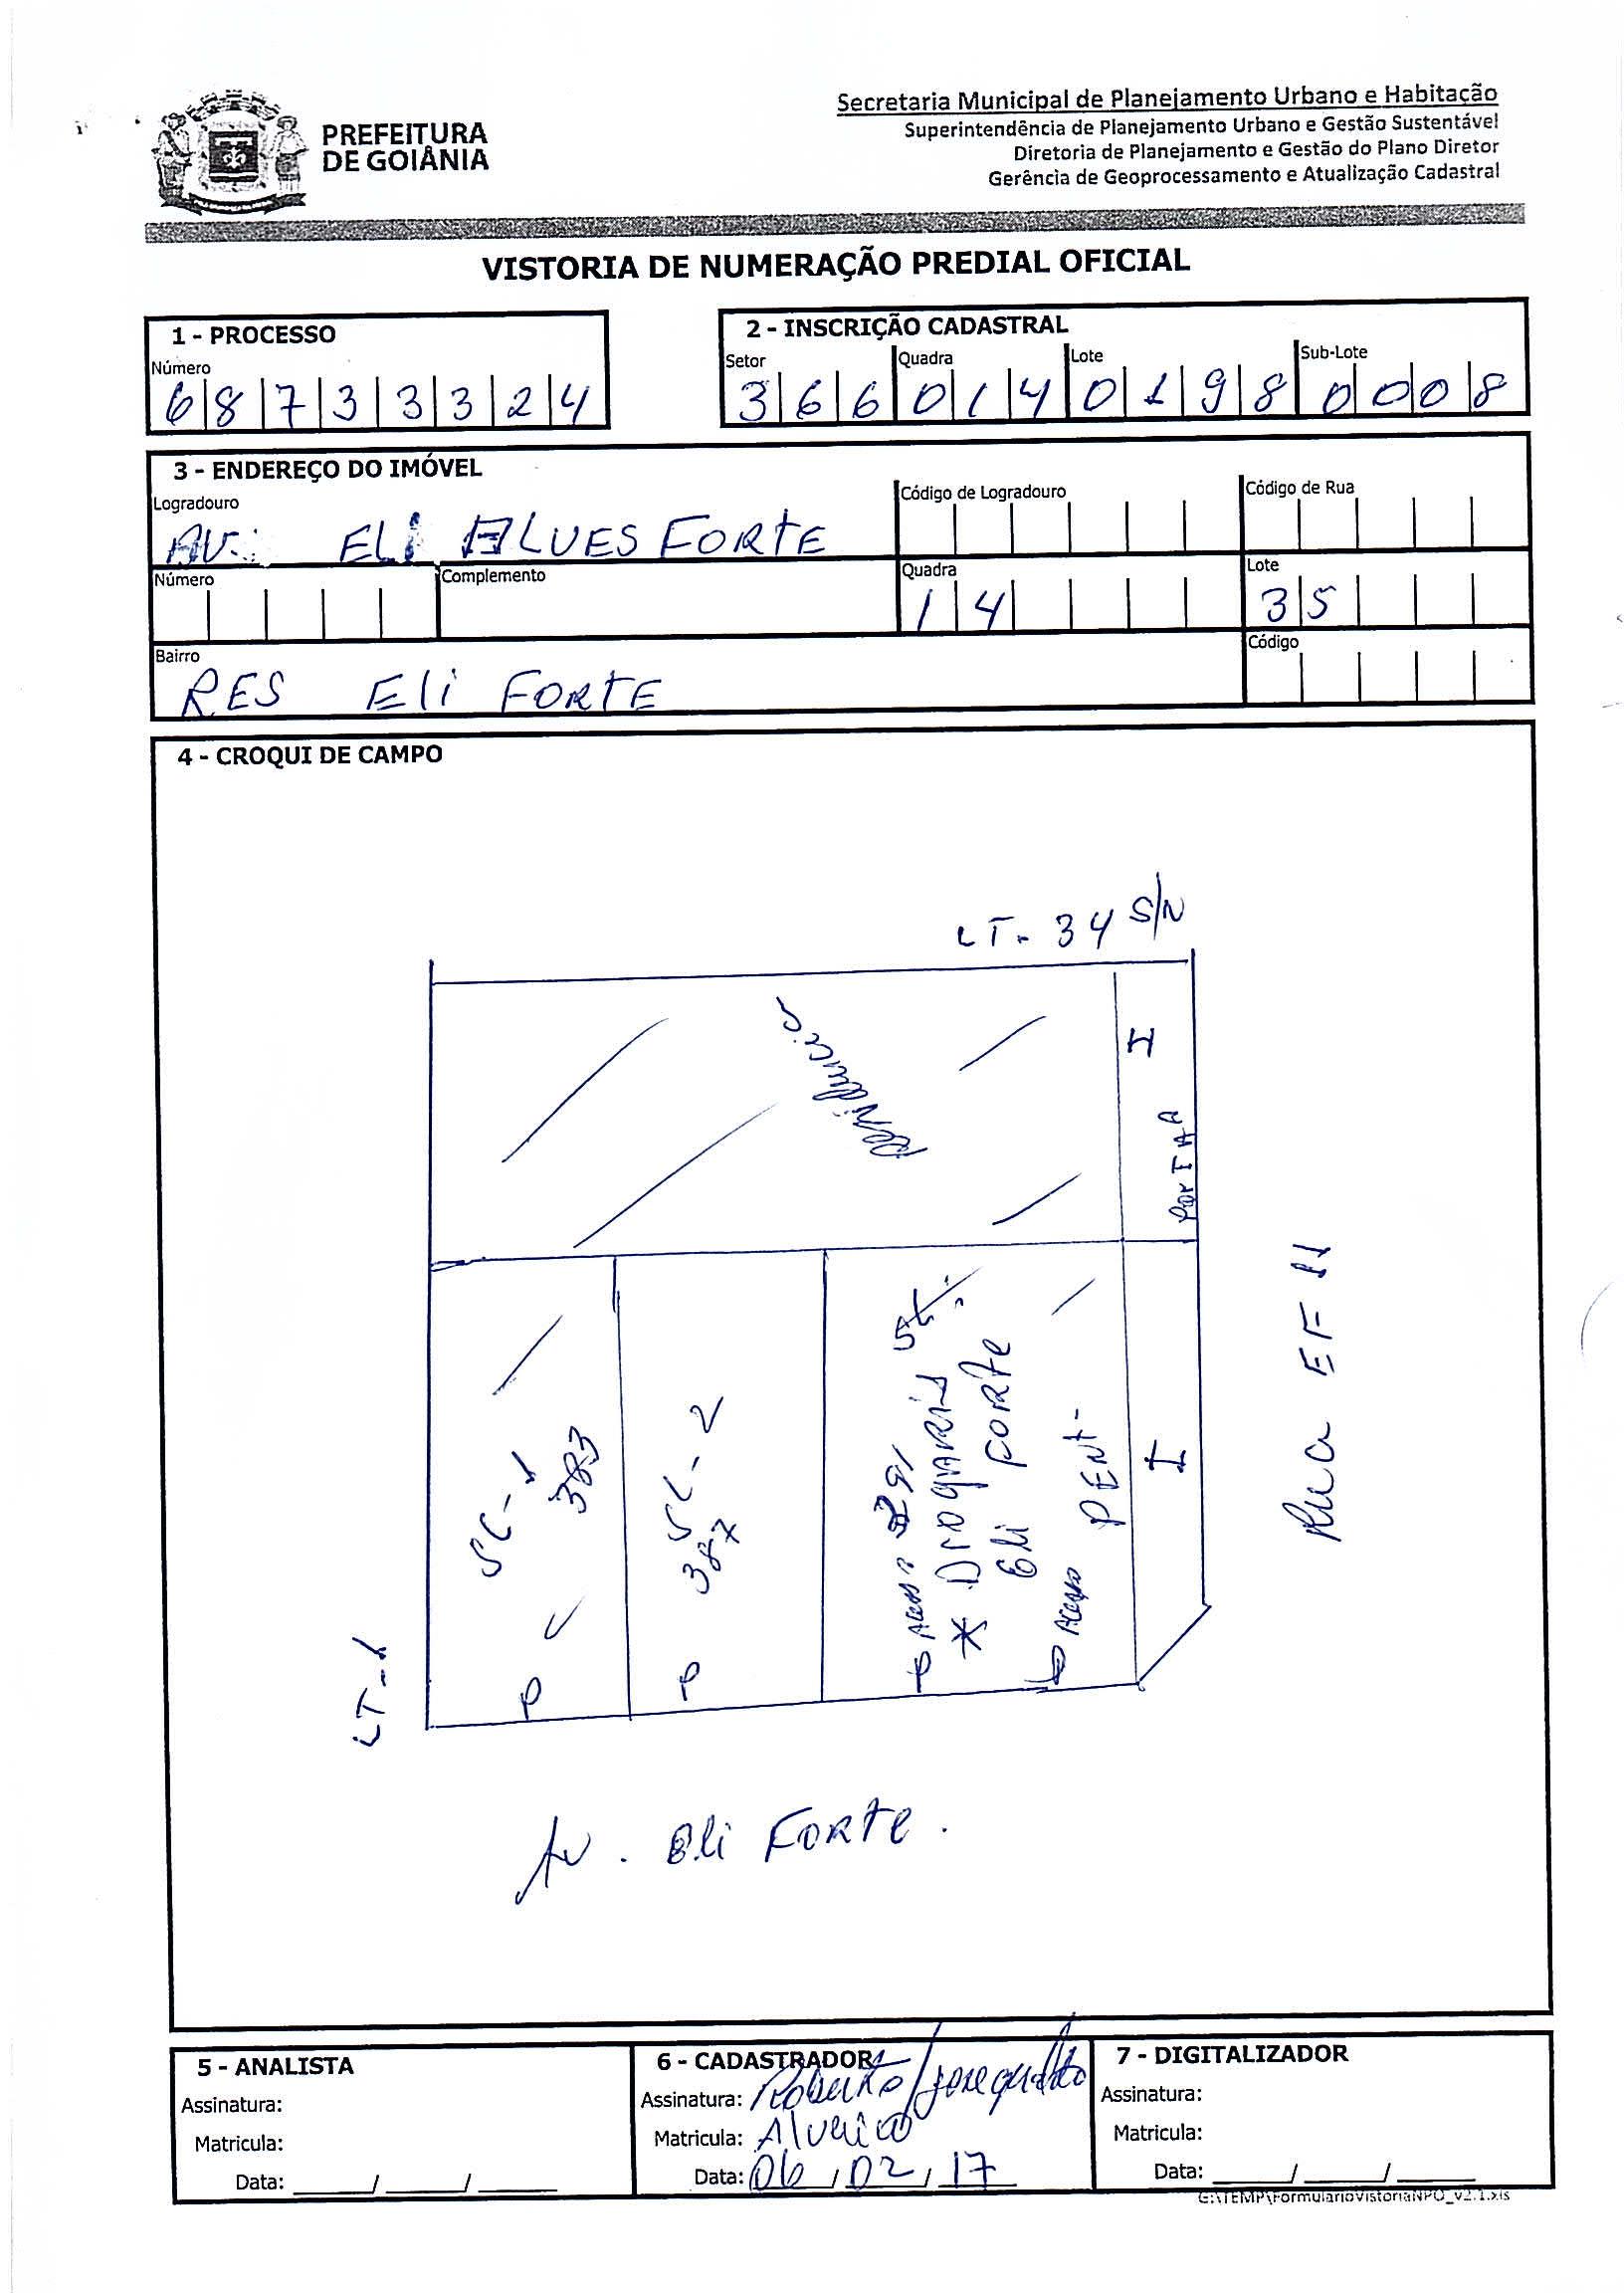 PREFEITURA
DE GOIÂNIA
Secretaria Municipal de Planejamento Urbano e Habitação
Superintendência de Planejamento Urbano e Gestão Sustentável
Diretoria de Planejamento e Gestão do Plano Diretor
Gerência de Geoprocessamento e Atualização Cadastral
VISTORIA DE NUMERAÇÃO PREDIAL OFICIAL
1 - PROCESSO
Número
6 8 7 3 3 3 2 4
2 - INSCRIÇÃO CADASTRAL
Setor Quadra Lote Sub-Lote
3 6 6 0 1 4 0 1 9 8 0 0 0 8
3 - ENDEREÇO DO IMÓVEL
Logradouro Código de Logradouro Código de Rua
AV. ELI ALVES FORTE
Número Complemento Quadra Lote
1 4 3 5
Bairro Código
RES Eli FORTE
4 - CROQUI DE CAMPO
LT - 34 S/N
Residencia
Rua EF 11
SL - 1
383
SL - 2
387
* Drogaria
Eli Forte
Acesso
PENT-
LT - 1
Av. Eli Forte.
5 - ANALISTA
Assinatura:
Matricula:
Data: / /
6 - CADASTRADOR
Assinatura: Roberto
Matricula:
Data: 06 / 02 / 17
7 - DIGITALIZADOR
Assinatura:
Matricula:
Data: / /
G:\TEMP\FormularioVistoriaNPO_v2.1.xls